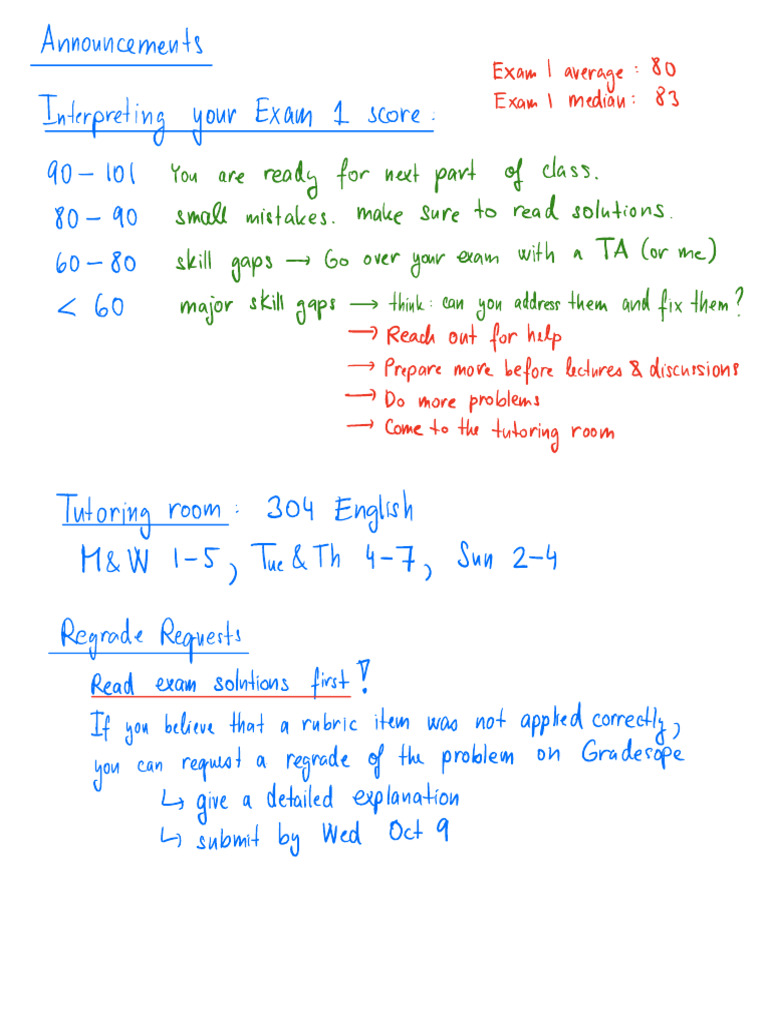 Announcements
Exam 1 average: 80
Exam 1 median: 83
Interpreting your Exam 1 score:
90 – 101 You are ready for next part of class.
80 – 90 small mistakes. make sure to read solutions.
60 – 80 skill gaps → Go over your exam with a TA (or me)
< 60 major skill gaps → think: can you address them and fix them?
→ Reach out for help
→ Prepare more before lectures & discussions
→ Do more problems
→ Come to the tutoring room
Tutoring room: 304 English
M&W 1–5, Tue & Th 4–7, Sun 2–4
Regrade Requests
Read exam solutions first!
If you believe that a rubric item was not applied correctly,
you can request a regrade of the problem on Gradesope
↳ give a detailed explanation
↳ submit by Wed Oct 9